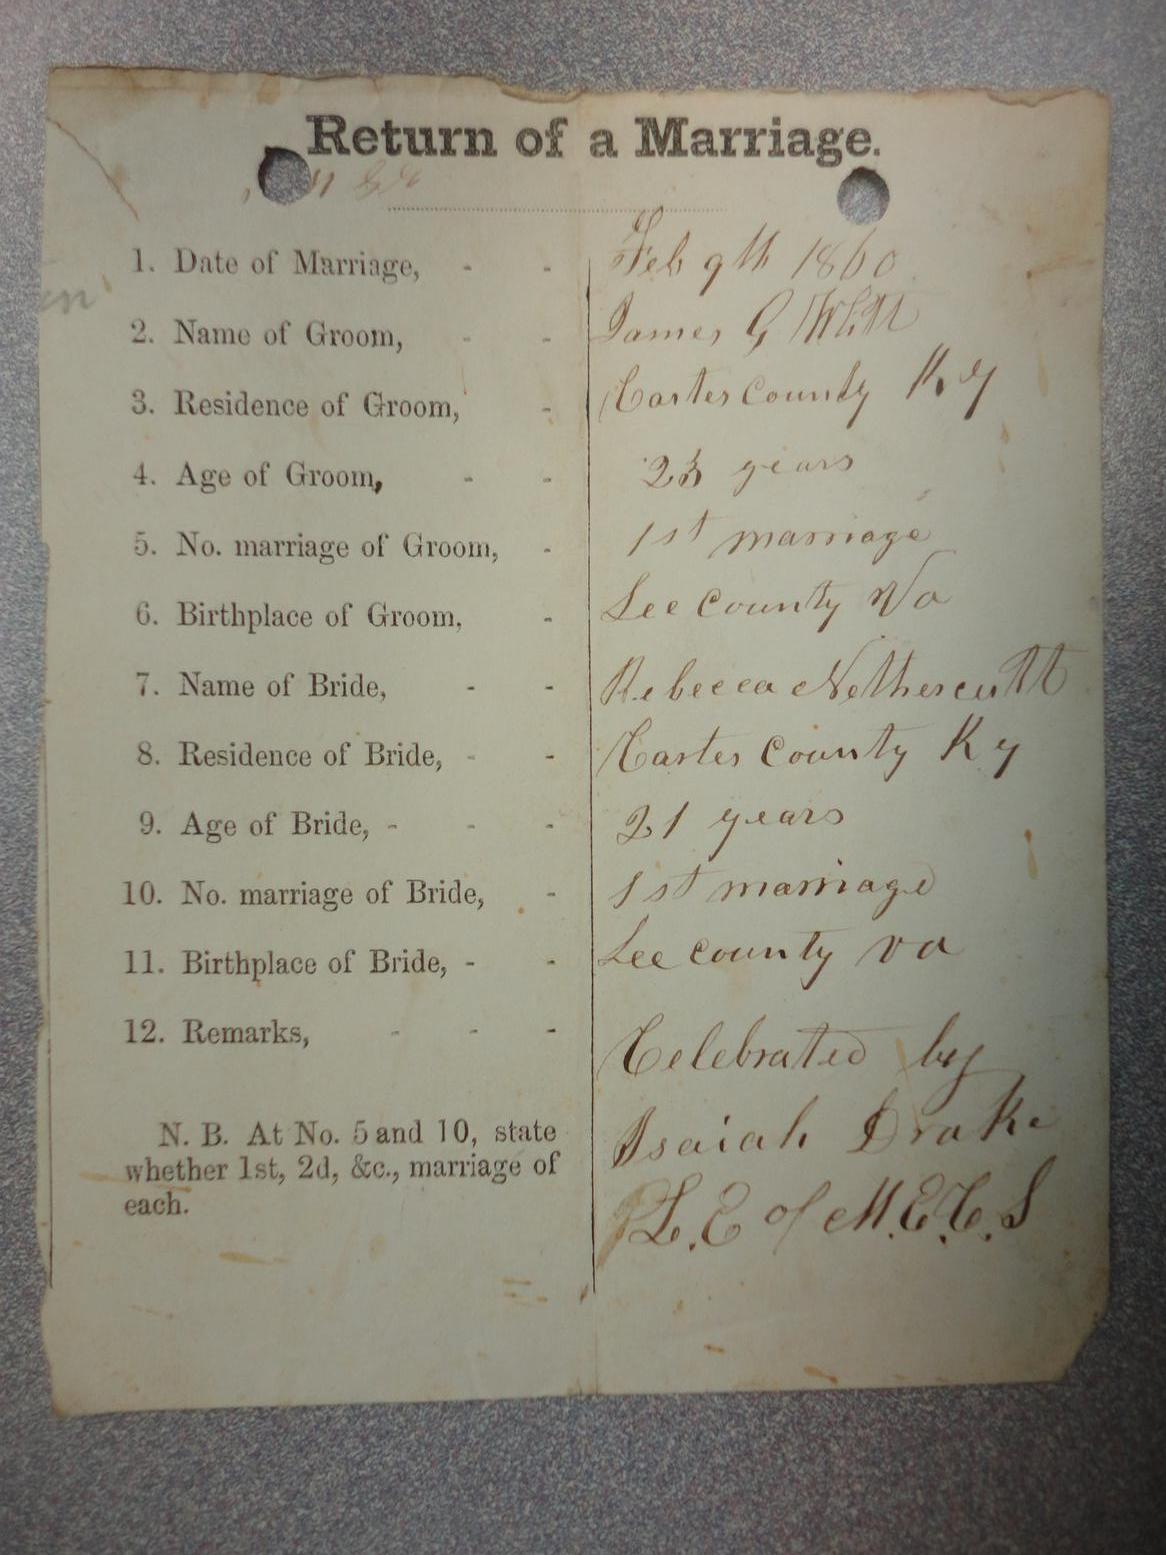 Return of a Marriage.
1. Date of Marriage, - - Feb 9th 1860
2. Name of Groom, - - James G Whitt
3. Residence of Groom, - Carter County Ky
4. Age of Groom, - - 23 years
5. No. marriage of Groom, - 1st marriage
6. Birthplace of Groom, - Lee County Va
7. Name of Bride, - - Rebecca Nethercutt
8. Residence of Bride, - - Carter County Ky
9. Age of Bride, - - - 21 years
10. No. marriage of Bride, - 1st marriage
11. Birthplace of Bride, - - Lee County va
12. Remarks, - - - Celebrated by
Isaiah Drake
L. E of M. E. C. S
N. B. At No. 5 and 10, state
whether 1st, 2d, &c., marriage of
each.